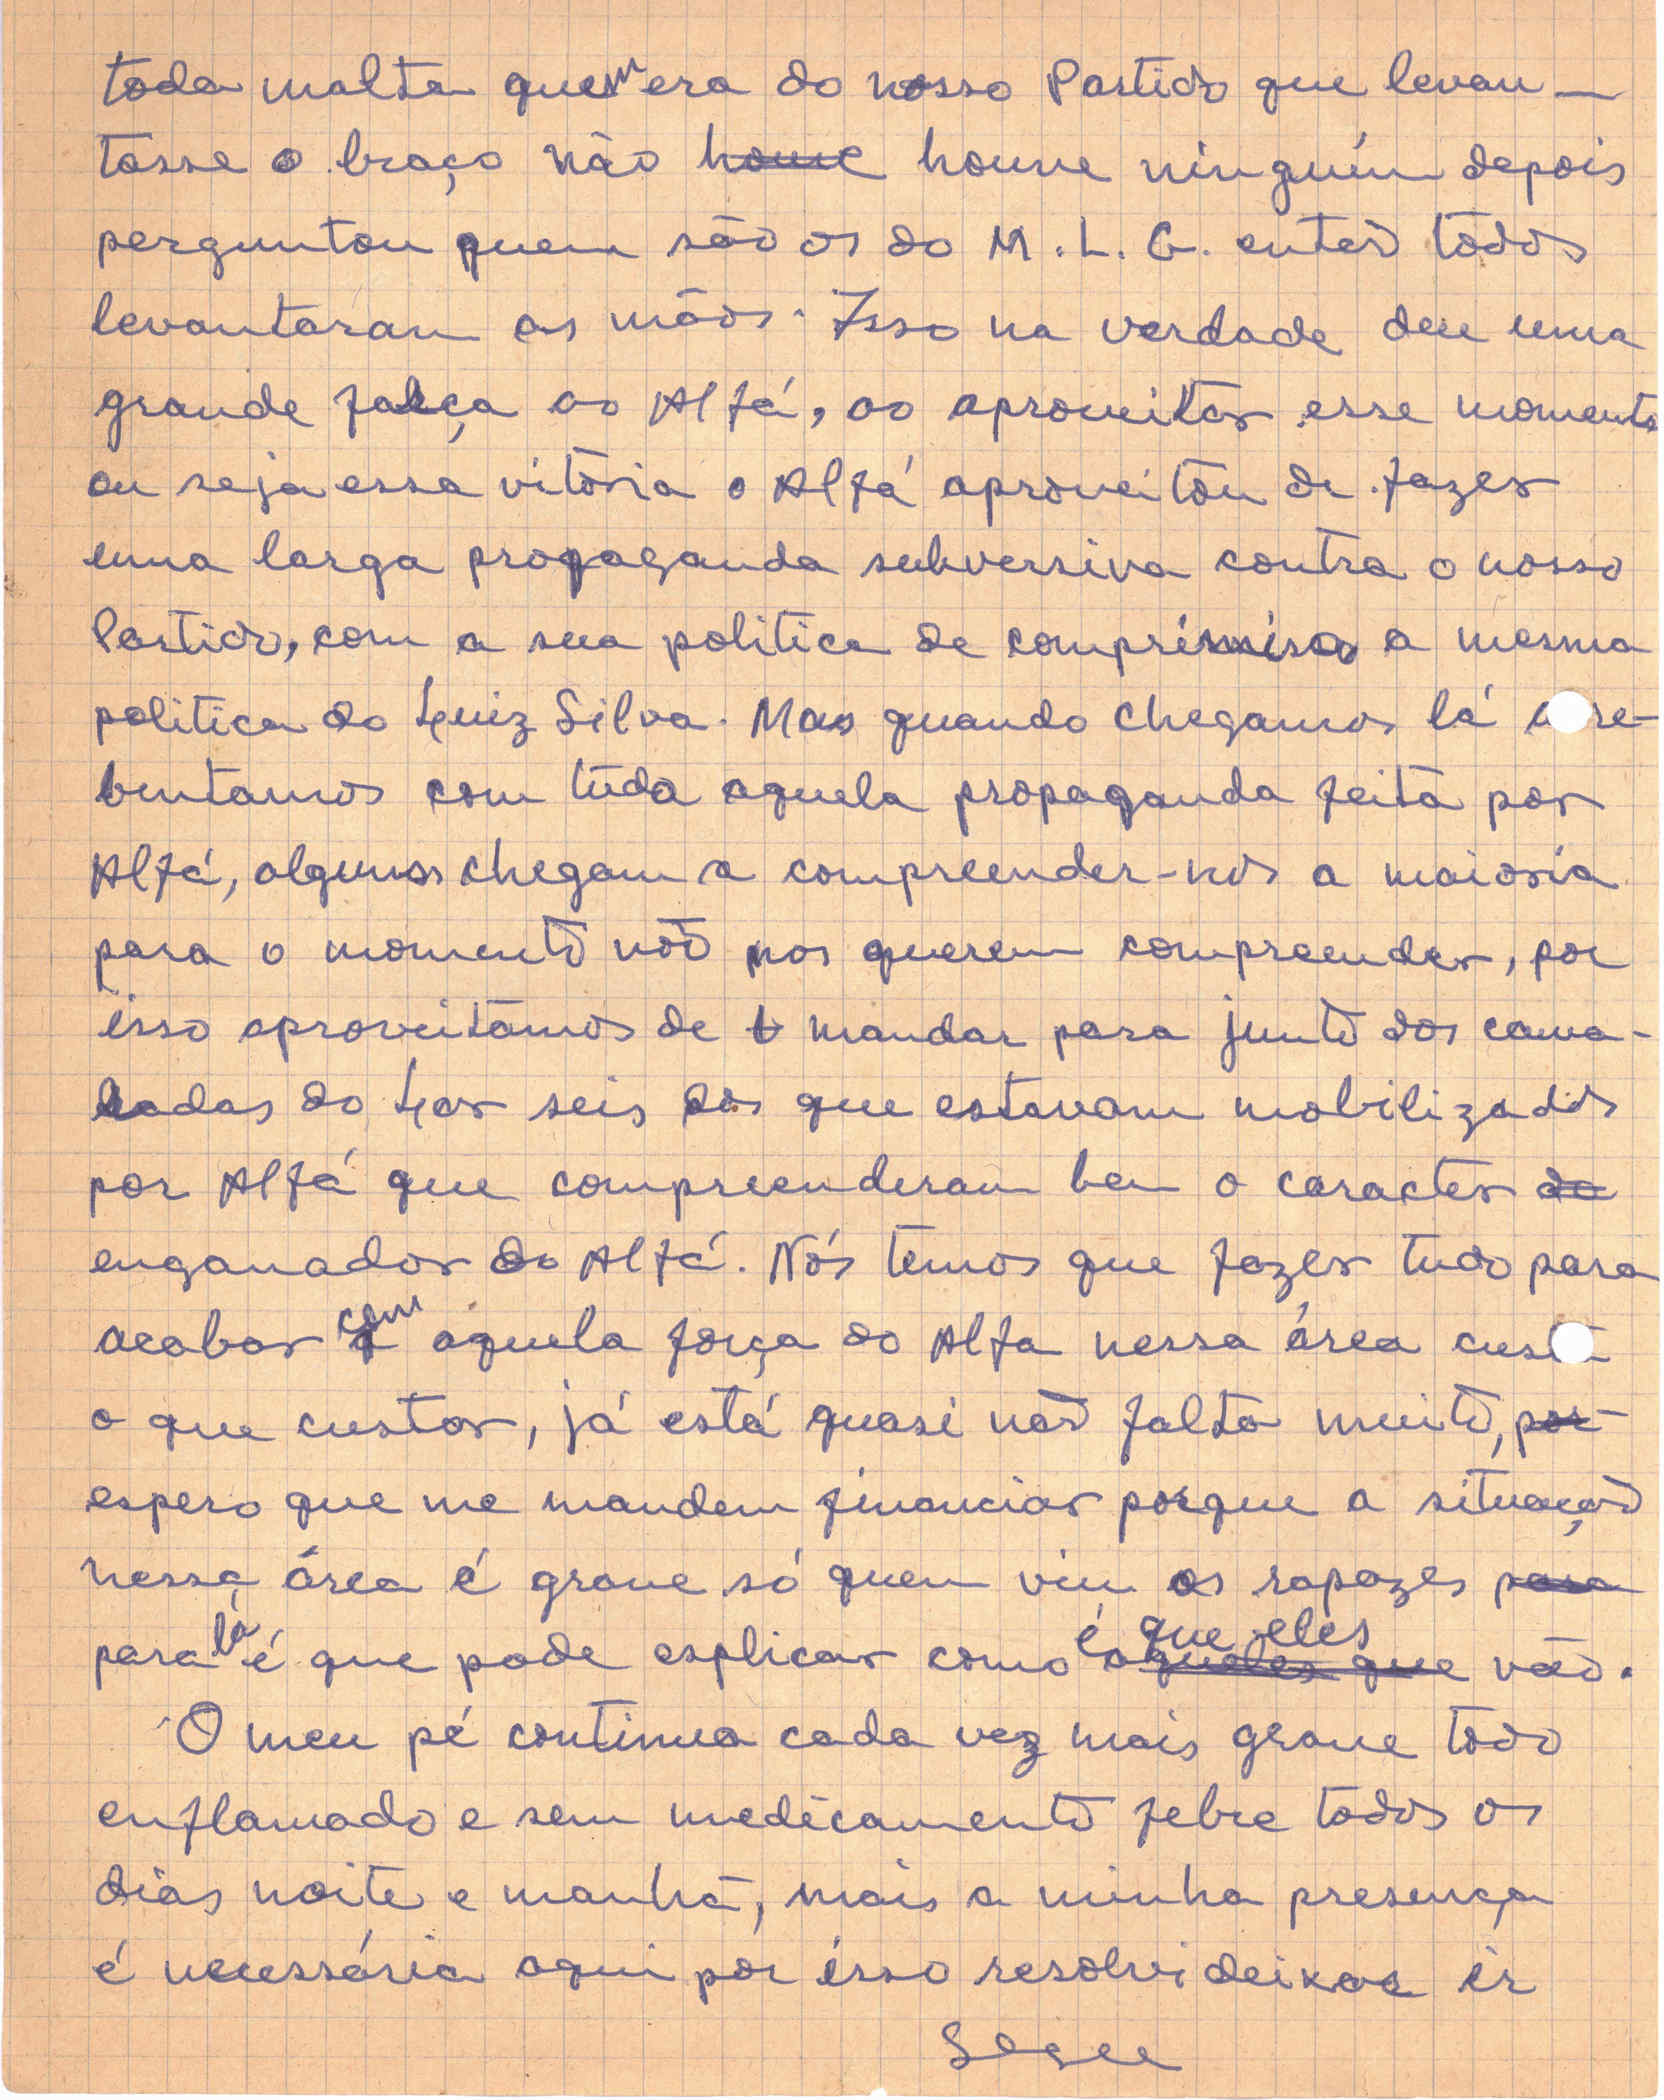 toda malta quem era do nosso Partido que levan-
tasse o braço não home houve ninguém depois
perguntou quem são os do M.L.G. entõ todos
levantaram as mãos. Isso na verdade deu uma
grande força ao Alfá, ao aproveitar esse momento
ou seja essa vitória o Alfá aproveitou de fazer
uma larga propaganda subversiva contra o nosso
Partido, com a sua politica de a mesma
politica do Luiz Silva. Mas quando chegamos lá re-
bentamos com tuda aquela propaganda feita por
Alfá, alguns chegam a compreender-nos a maioria
para o momento não nos querem compreender, por
isso aproveitamos de mandar para junto dos cama-
radas do Lar seis dos que estavam mobilizados
por Alfá que compreenderam bem o caracter de
enganador do Alfá. Nós temos que fazer tudo para
acabar com aquela força do Alfa nessa área custa
o que custar, já está quasi não falta muito, por
espero que me mandem financiar porque a situação
nessa área é grave só quem viu os rapazes para
para lá é que pode esplicar como é aqueles que que eles vão.
O meu pé continua cada vez mais grave todo
enflamado e sem medicamento febre todos os
dias noite e manhã, mais a minha presença
é necessária aqui por isso resolvi deixar ir